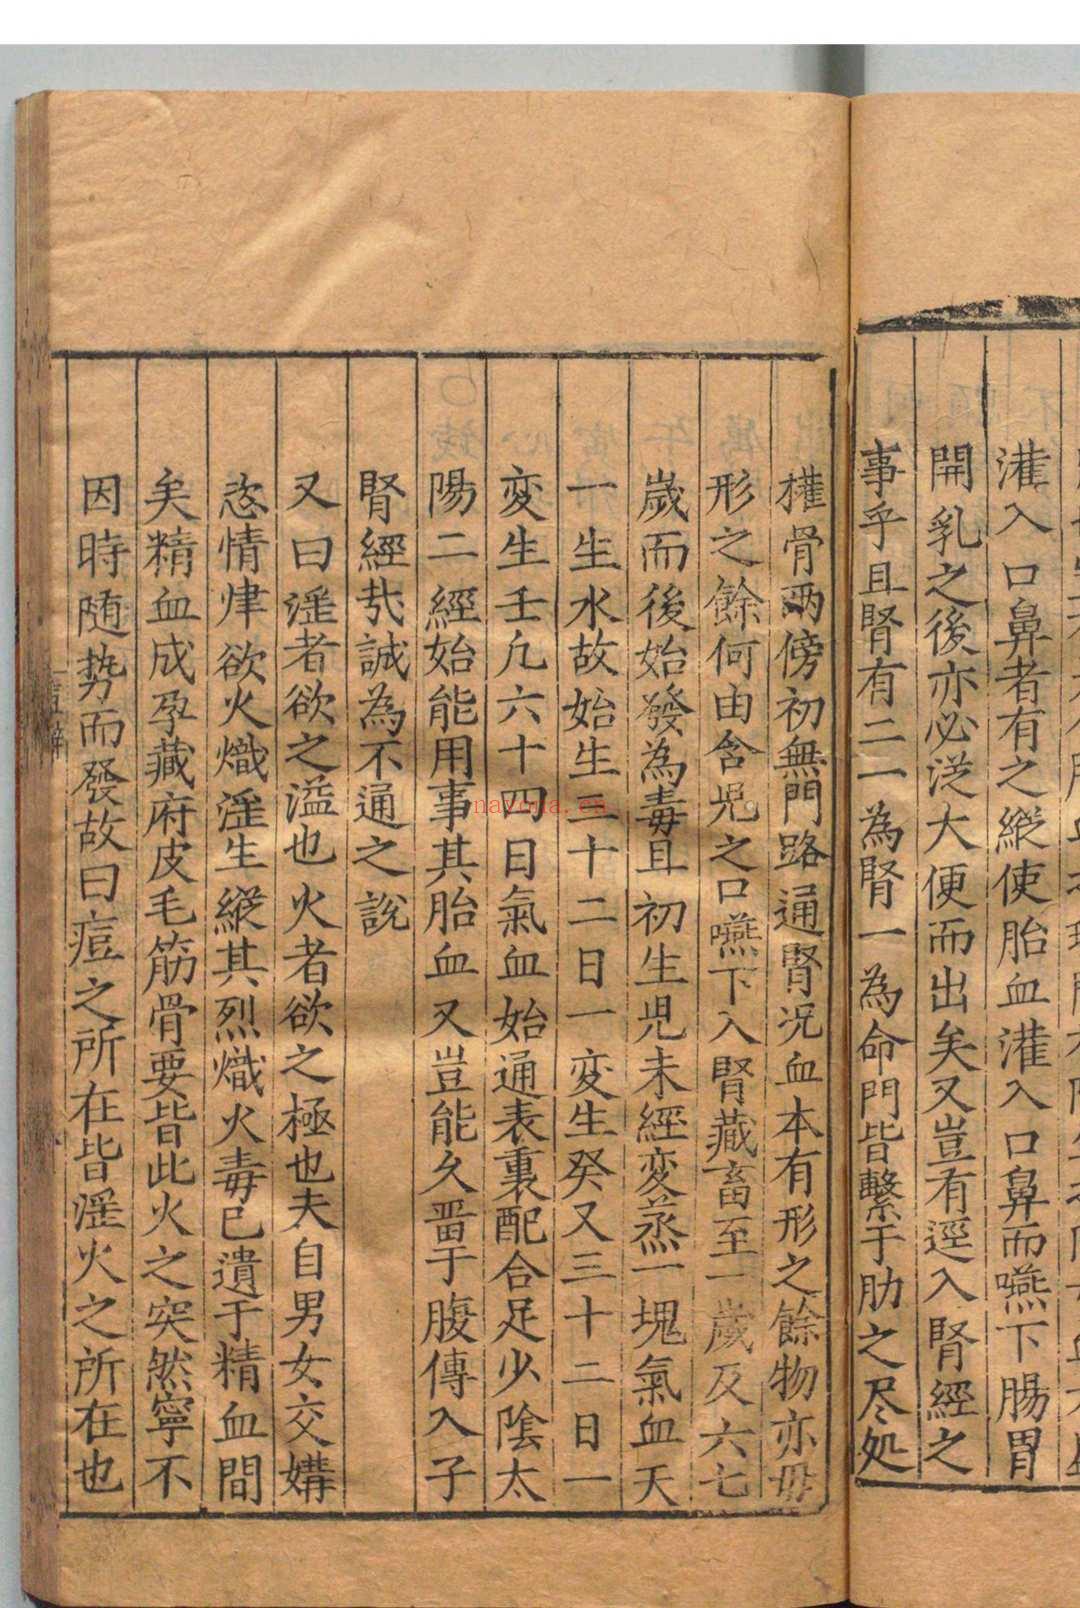 灌入口鼻者有之縱使胎血灌入口鼻而嚥下腸胃
開乳之後亦必從大便而出矣又豈有逕入腎經之
事乎且腎有二一為腎一為命門皆繫于肋之尽処
權骨兩傍初無門路通腎況血本有形之餘物亦毋
形之餘何由含児之口嚥下入腎藏畜至一歲及六七
歲而後始發為毒且初生児未經変蒸一塊氣血天
一生水故始生三十二日一変生癸又三十二日一
変生壬凡六十四日氣血始通表裏配合足少陰太
陽二經始能用事其胎血又豈能久畱于腹傳入子
腎經哉誠為不通之說
又曰淫者欲之溢也火者欲之極也夫自男女交媾
恣情肆欲火熾淫生縱其烈熾火毒已遺于精血間
矣精血成孕藏府皮毛筋骨要皆此火之突然寧不
因時随勢而發故曰痘之所在皆淫火之所在也
nayona.cn